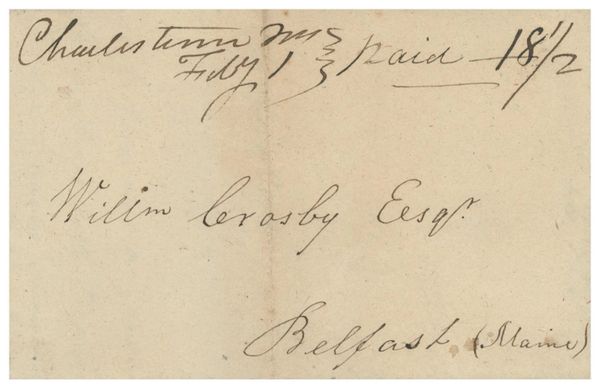 Charlestown Ms
Feby 1 Paid 18 1/2
Willm Crosby Eesqr.
Belfast (Maine)